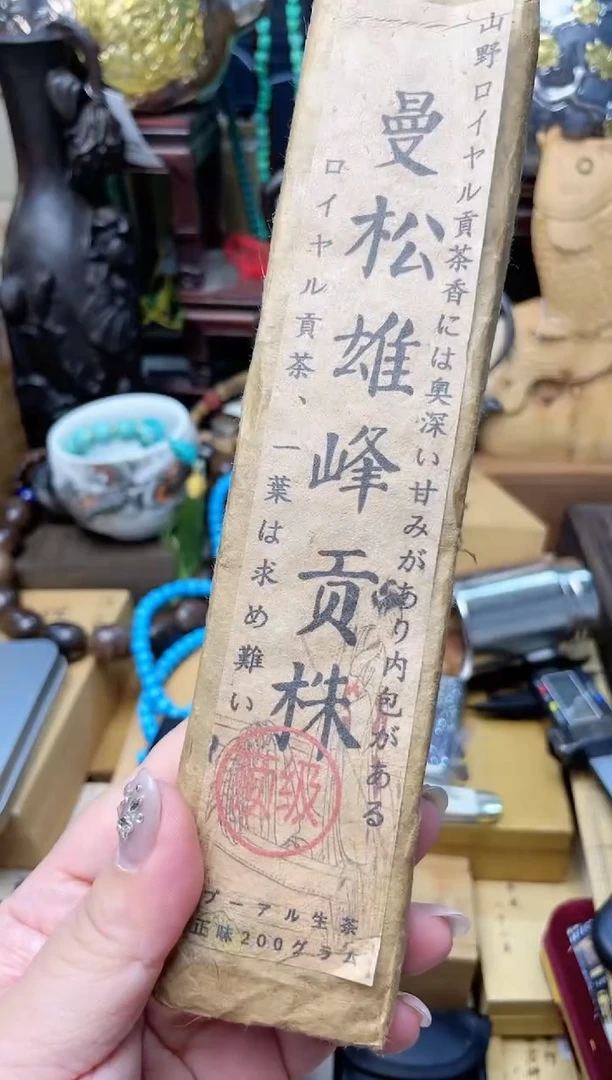 山野ロイヤル貢茶香には奥深い甘みがあり内包がある
曼松雄峰贡株
ロイヤル貢茶、一葉は求め難い
级
プーアル生茶
正味200グラム